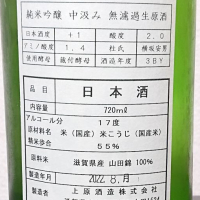 純米吟醸 中汲み 無濾過生原酒
日本酒度 +1 酸度 2.0
アミノ酸度 1.4 杜氏 横坂安男
使用酵母 蔵付酵母 酒造年度 3BY
品目 日本酒
内容量 720ml
アルコール分 17度
原材料名 米(国産)米こうじ(国産米)
精米歩合 55%
原料米 滋賀県産 山田錦 100%
製造年月 2022.8.月
製造者 上原酒造株式会社